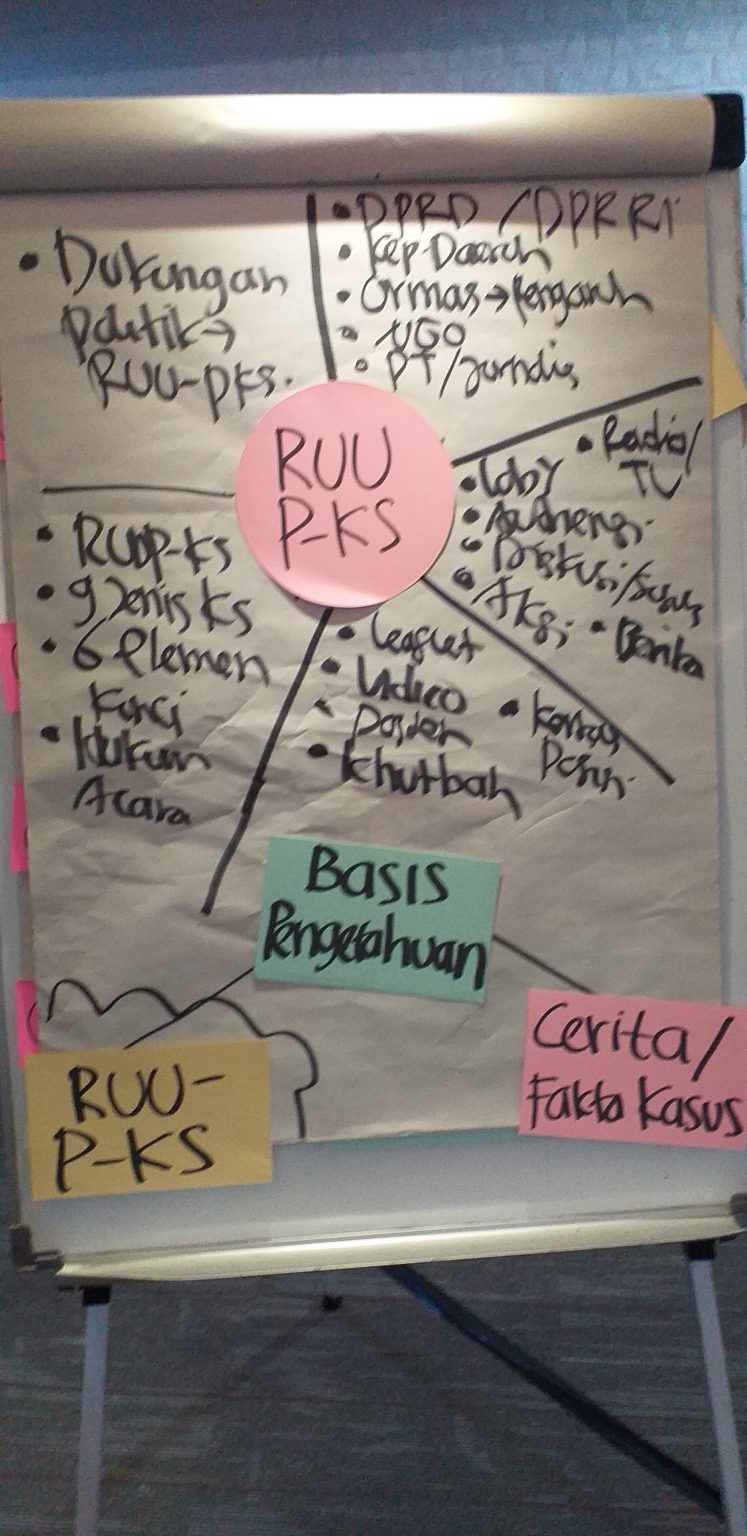 • Dukungan
Politik →
RUU-PKS.
• DPRD / DPR RI
• Kep Daerah
• Ormas → Pengaruh
• NGO
• PT / Jurnalis
RUU
P-KS
• Radio/
TV
• Loby
• Audiensi
• Diskusi/
• Aksi
• Berita
• RUUP-KS
• 9 Jenis KS
• 6 Elemen
Kunci
• Hukum
Acara
• Leaflet
• Video
Poster
• Khutbah
BASIS
Pengetahuan
RUU-
P-KS
Cerita/
Fakta Kasus